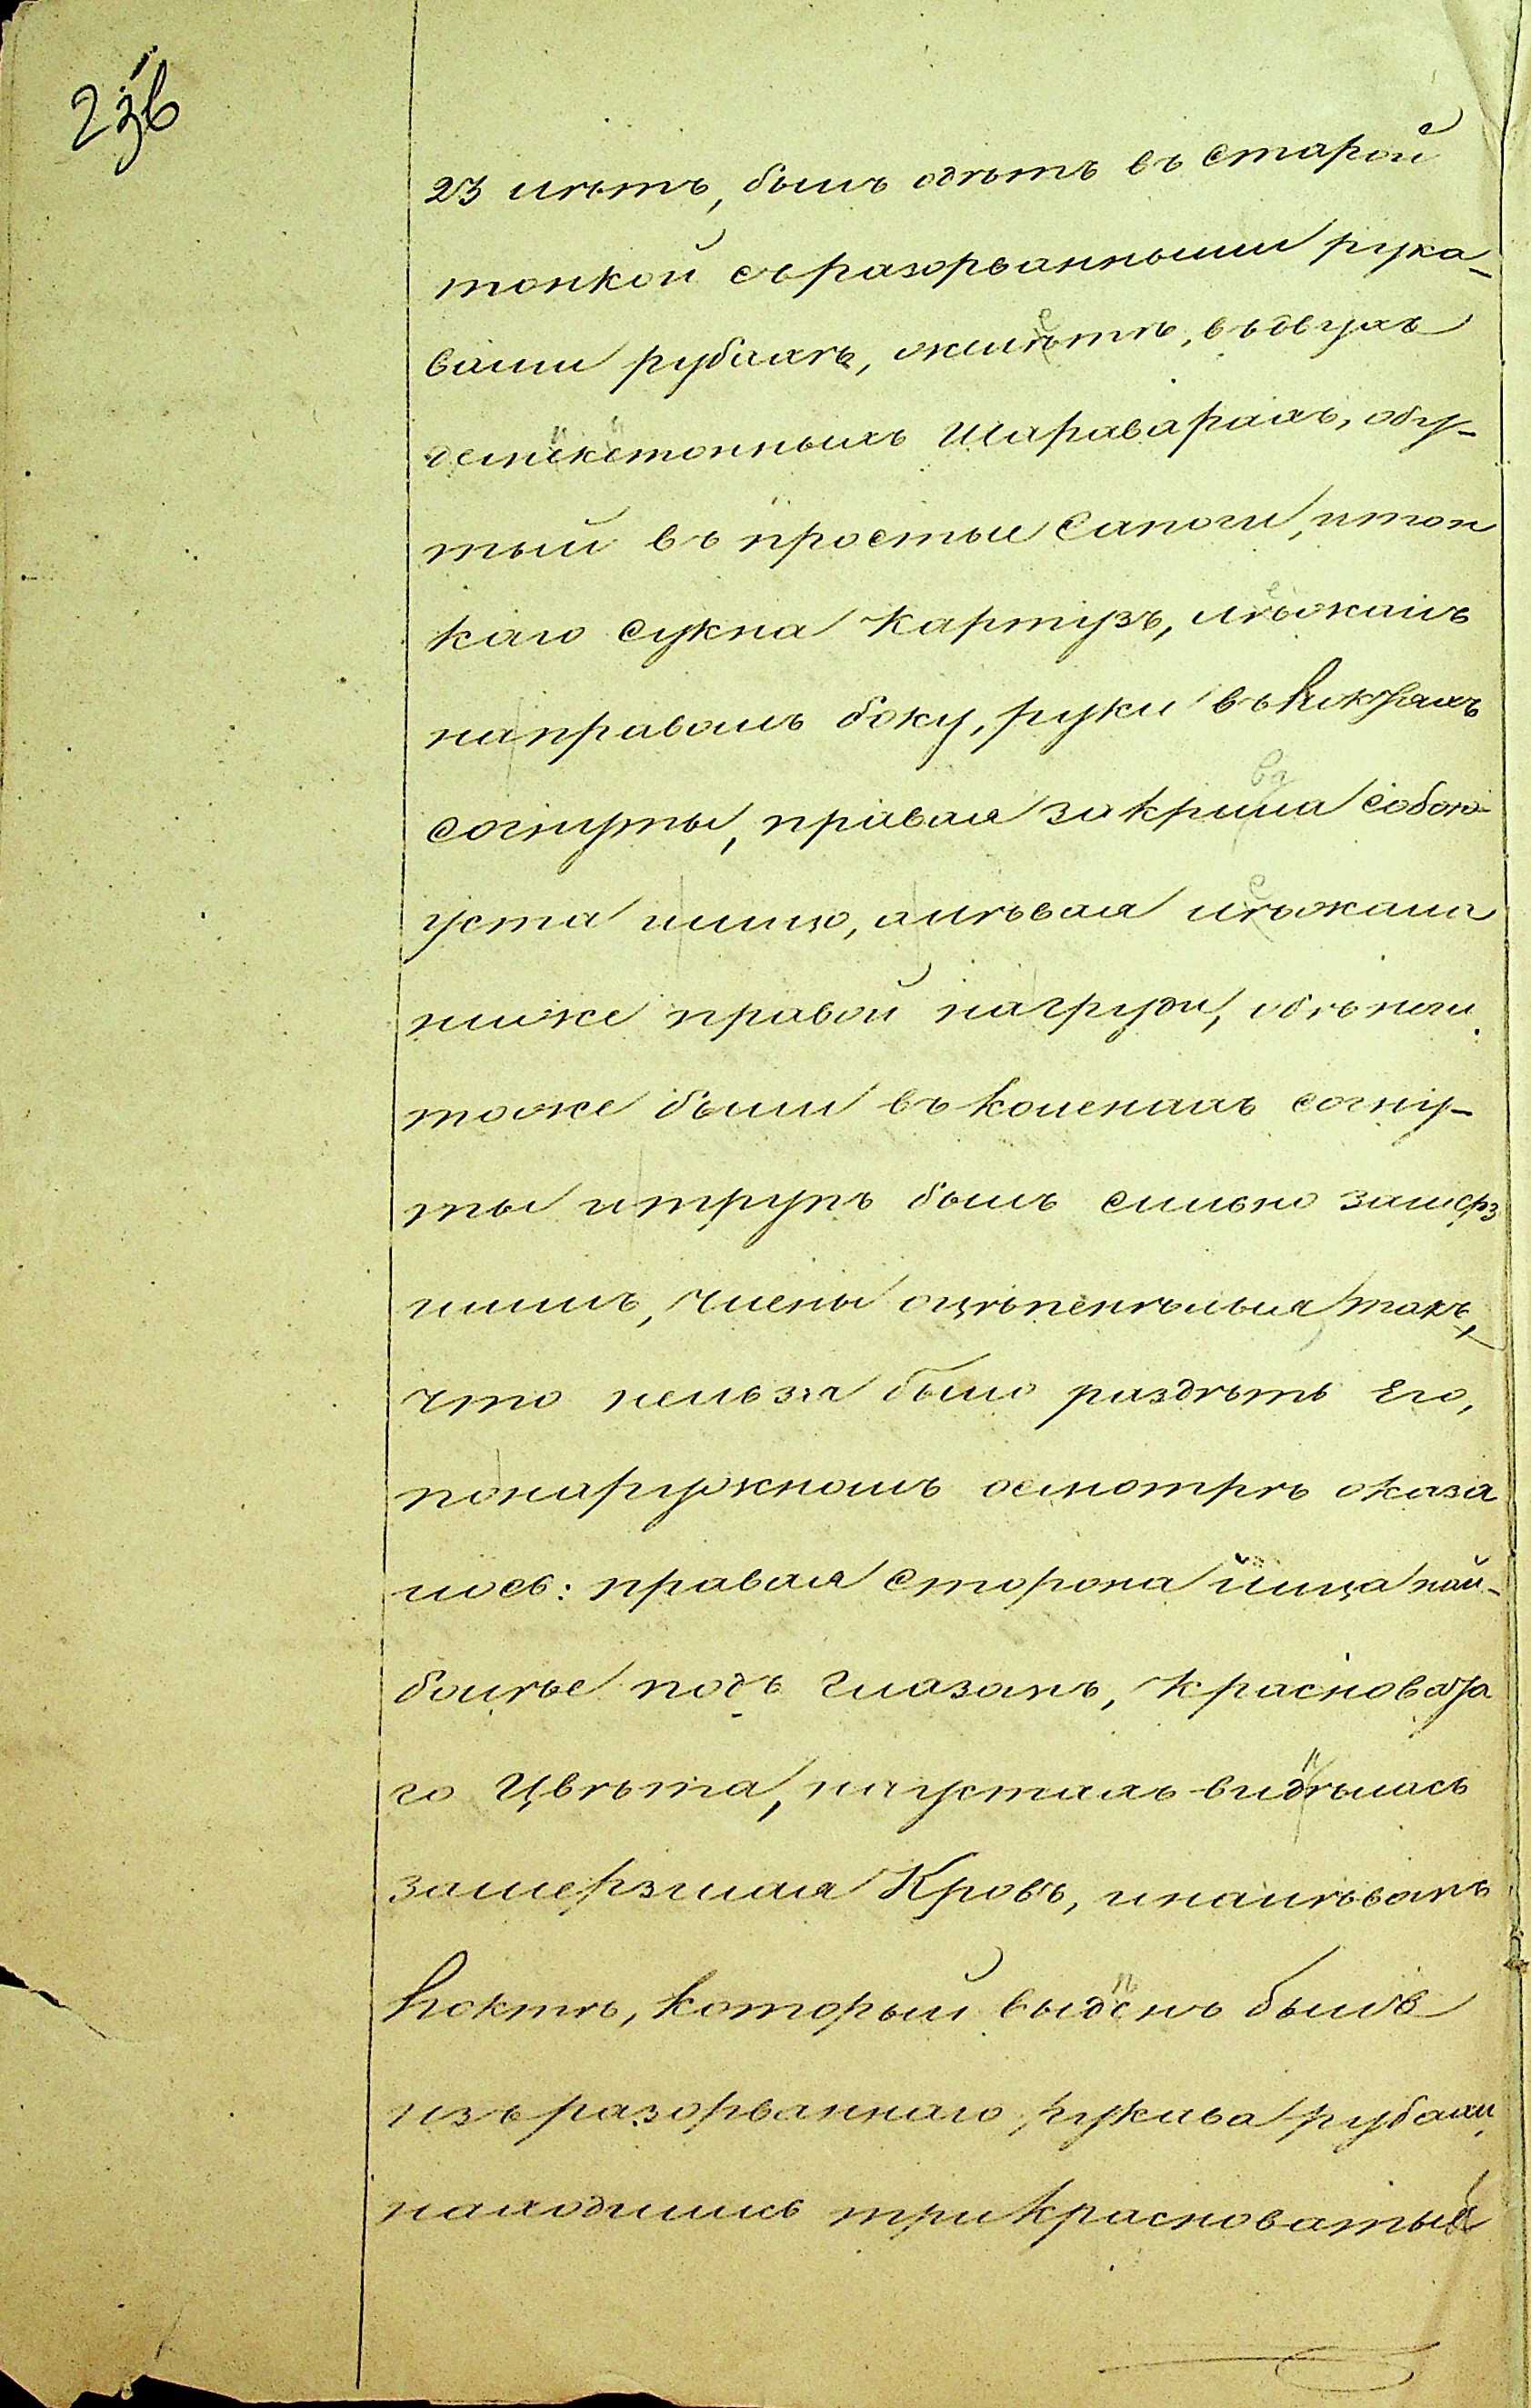 23в
23 лѣтъ, былъ одѣтъ въ старой
тонкой съ разорванными рука-
вами рубахѣ, жилѣтѣ, въ двухъ
демикетонныхъ шараварахъ, обу-
тый въ простые сапоги, и тон
каго сукна картузъ, лѣжалъ
на правомъ боку, руки въ локтяхъ
согнуты, правая закрыла собою
уста и лицо, а лѣвая лѣжала
ниже правой на груди, обѣ ноги
тоже были въ коленахъ согну-
ты и трупъ былъ сильно замерз
шимъ, члены оцѣпенѣлыя такъ,
что нельзя было раздѣть его,
по наружномъ осмотрѣ оказа
лось: правая сторона лица наи-
болѣе подъ глазомъ, красновата
го цвѣта, на устахъ видѣлась
замерзшая кровь, и на лѣвомъ
локтѣ, который выденъ былъ
изъ разорваннаго рукава рубахи,
находились три красноватыя